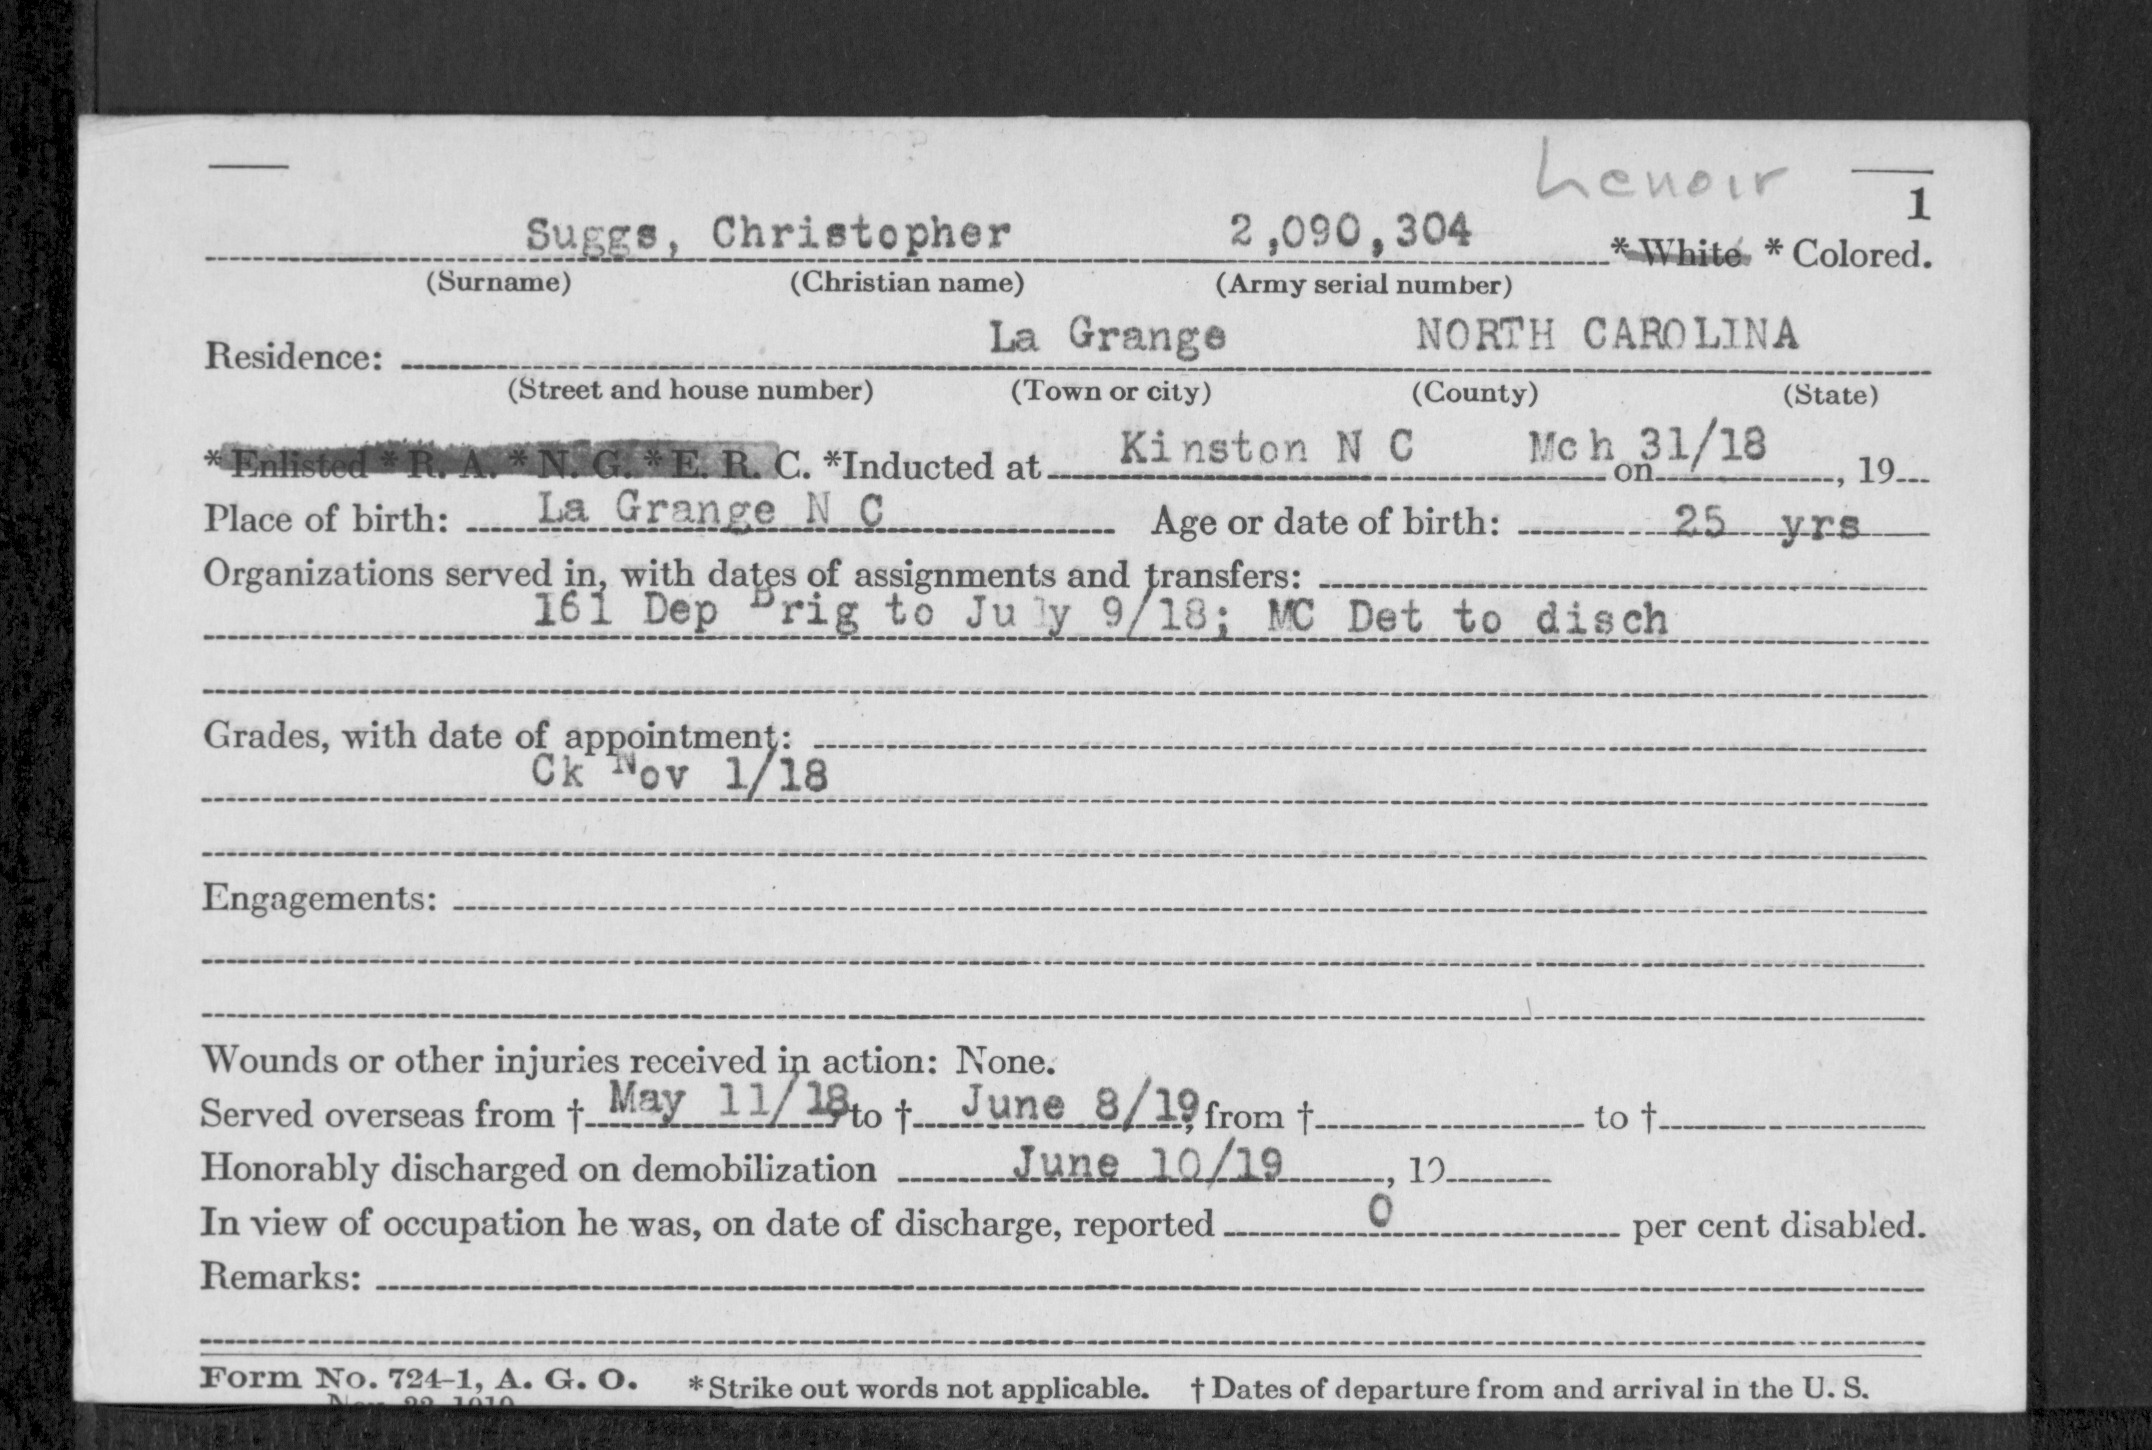 Lenoir
1
Suggs, Christopher 2,090,304 * White * Colored.
(Surname) (Christian name) (Army serial number)
La Grange NORTH CAROLINA
Residence:
(Street and house number) (Town or city) (County) (State)
* Enlisted * R. A. * N. G. * E. R. C. *Inducted at Kinston N C on Mch 31/18, 19
Place of birth: La Grange N C Age or date of birth: 25 yrs
Organizations served in, with dates of assignments and transfers:
161 Dep Brig to July 9/18; MC Det to disch
Grades, with date of appointment:
Ck Nov 1/18
Engagements:
Wounds or other injuries received in action: None.
Served overseas from † May 11/18, to † June 8/19, from † to †
Honorably discharged on demobilization June 10/19, 19
In view of occupation he was, on date of discharge, reported 0 per cent disabled.
Remarks:
Form No. 724-1, A. G. O. * Strike out words not applicable. † Dates of departure from and arrival in the U. S.